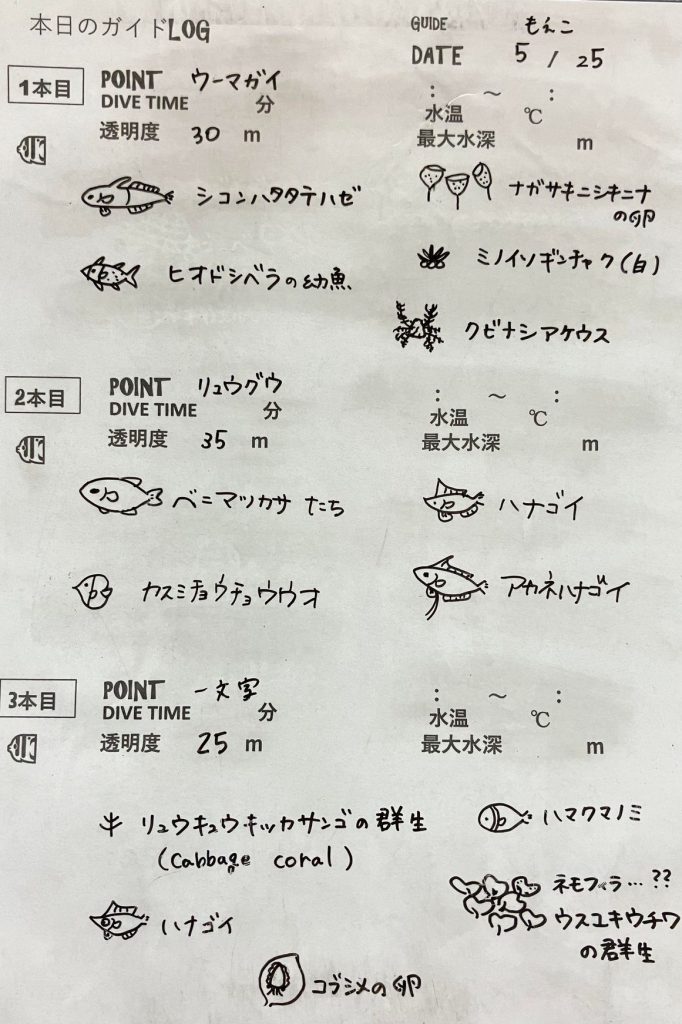 本日のガイドLOG
GUIDE もえこ
DATE 5 / 25
1本目 POINT ウーマガイ
DIVE TIME 分 : ～ :
透明度 30 m 水温 ℃
最大水深 m
シコンハタタテハゼ
ナガサキニシキニナ
の卵
ヒオドシベラの幼魚、
ミノイソギンチャク(白)
クビナシアケウス
2本目 POINT リュウグウ
DIVE TIME 分 : ～ :
透明度 35 m 水温 ℃
最大水深 m
ベニマツカサ たち
ハナゴイ
カスミチョウチョウウオ
アカネハナゴイ
3本目 POINT 一文字
DIVE TIME 分 : ～ :
透明度 25 m 水温 ℃
最大水深 m
リュウキュウキッカサンゴの群生
(Cabbage coral)
ハマクマノミ
ハナゴイ
ネモフィラ…??
ウスユキウチワ
の群生
コブシメの卵